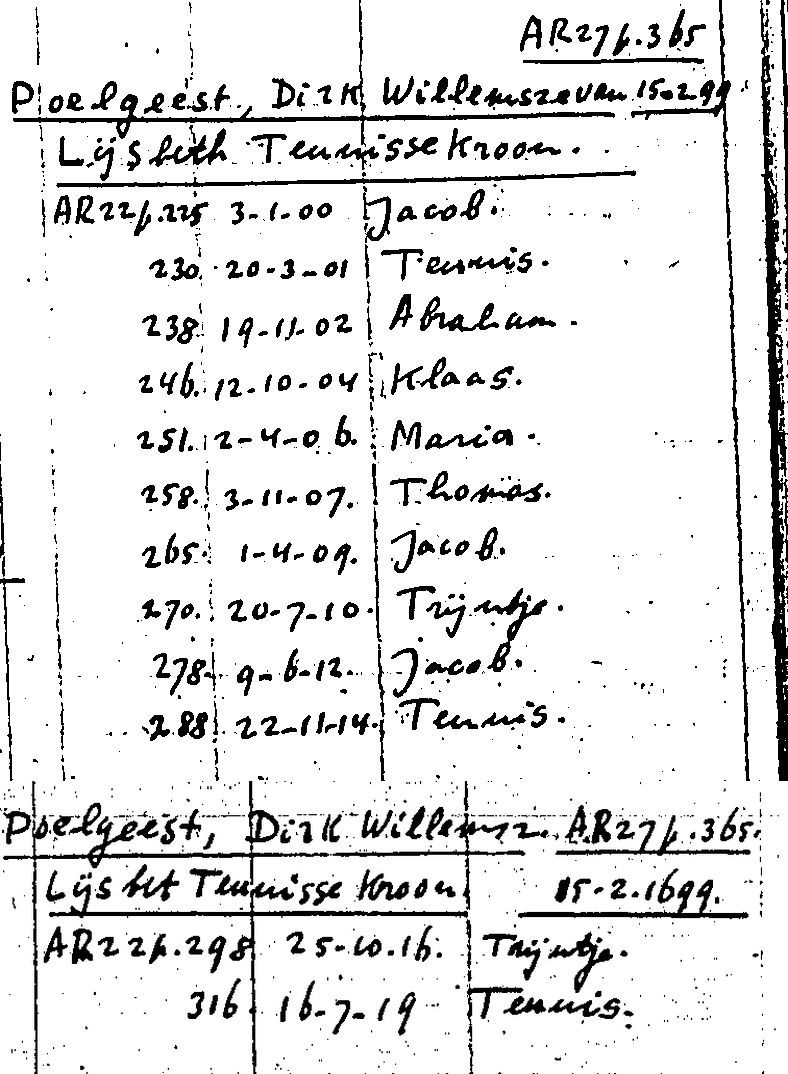 AR27p.365
Poelgeest, Dirk Willemsze van 15-2.99
Lijsbeth Teunisse Kroon.
AR22p.225 3-1-00 Jacob.
230. 20-3-01 Teunis.
238. 19-11-02 Abraham.
246. 12-10-04 Klaas.
251. 2-4-06. Maria.
258. 3-11-07. Thomas.
265. 1-4-09. Jacob.
270. 20-7-10. Trijntje.
278. 9-6-12. Jacob.
288. 22-11-14. Teunis.
Poelgeest, Dirk Willemsz. AR27p.365.
Lijsbet Teunisse Kroon. 15-2.1699.
AR22p.298 25-10.16. Trijntje.
316. 16-7-19 Teunis.